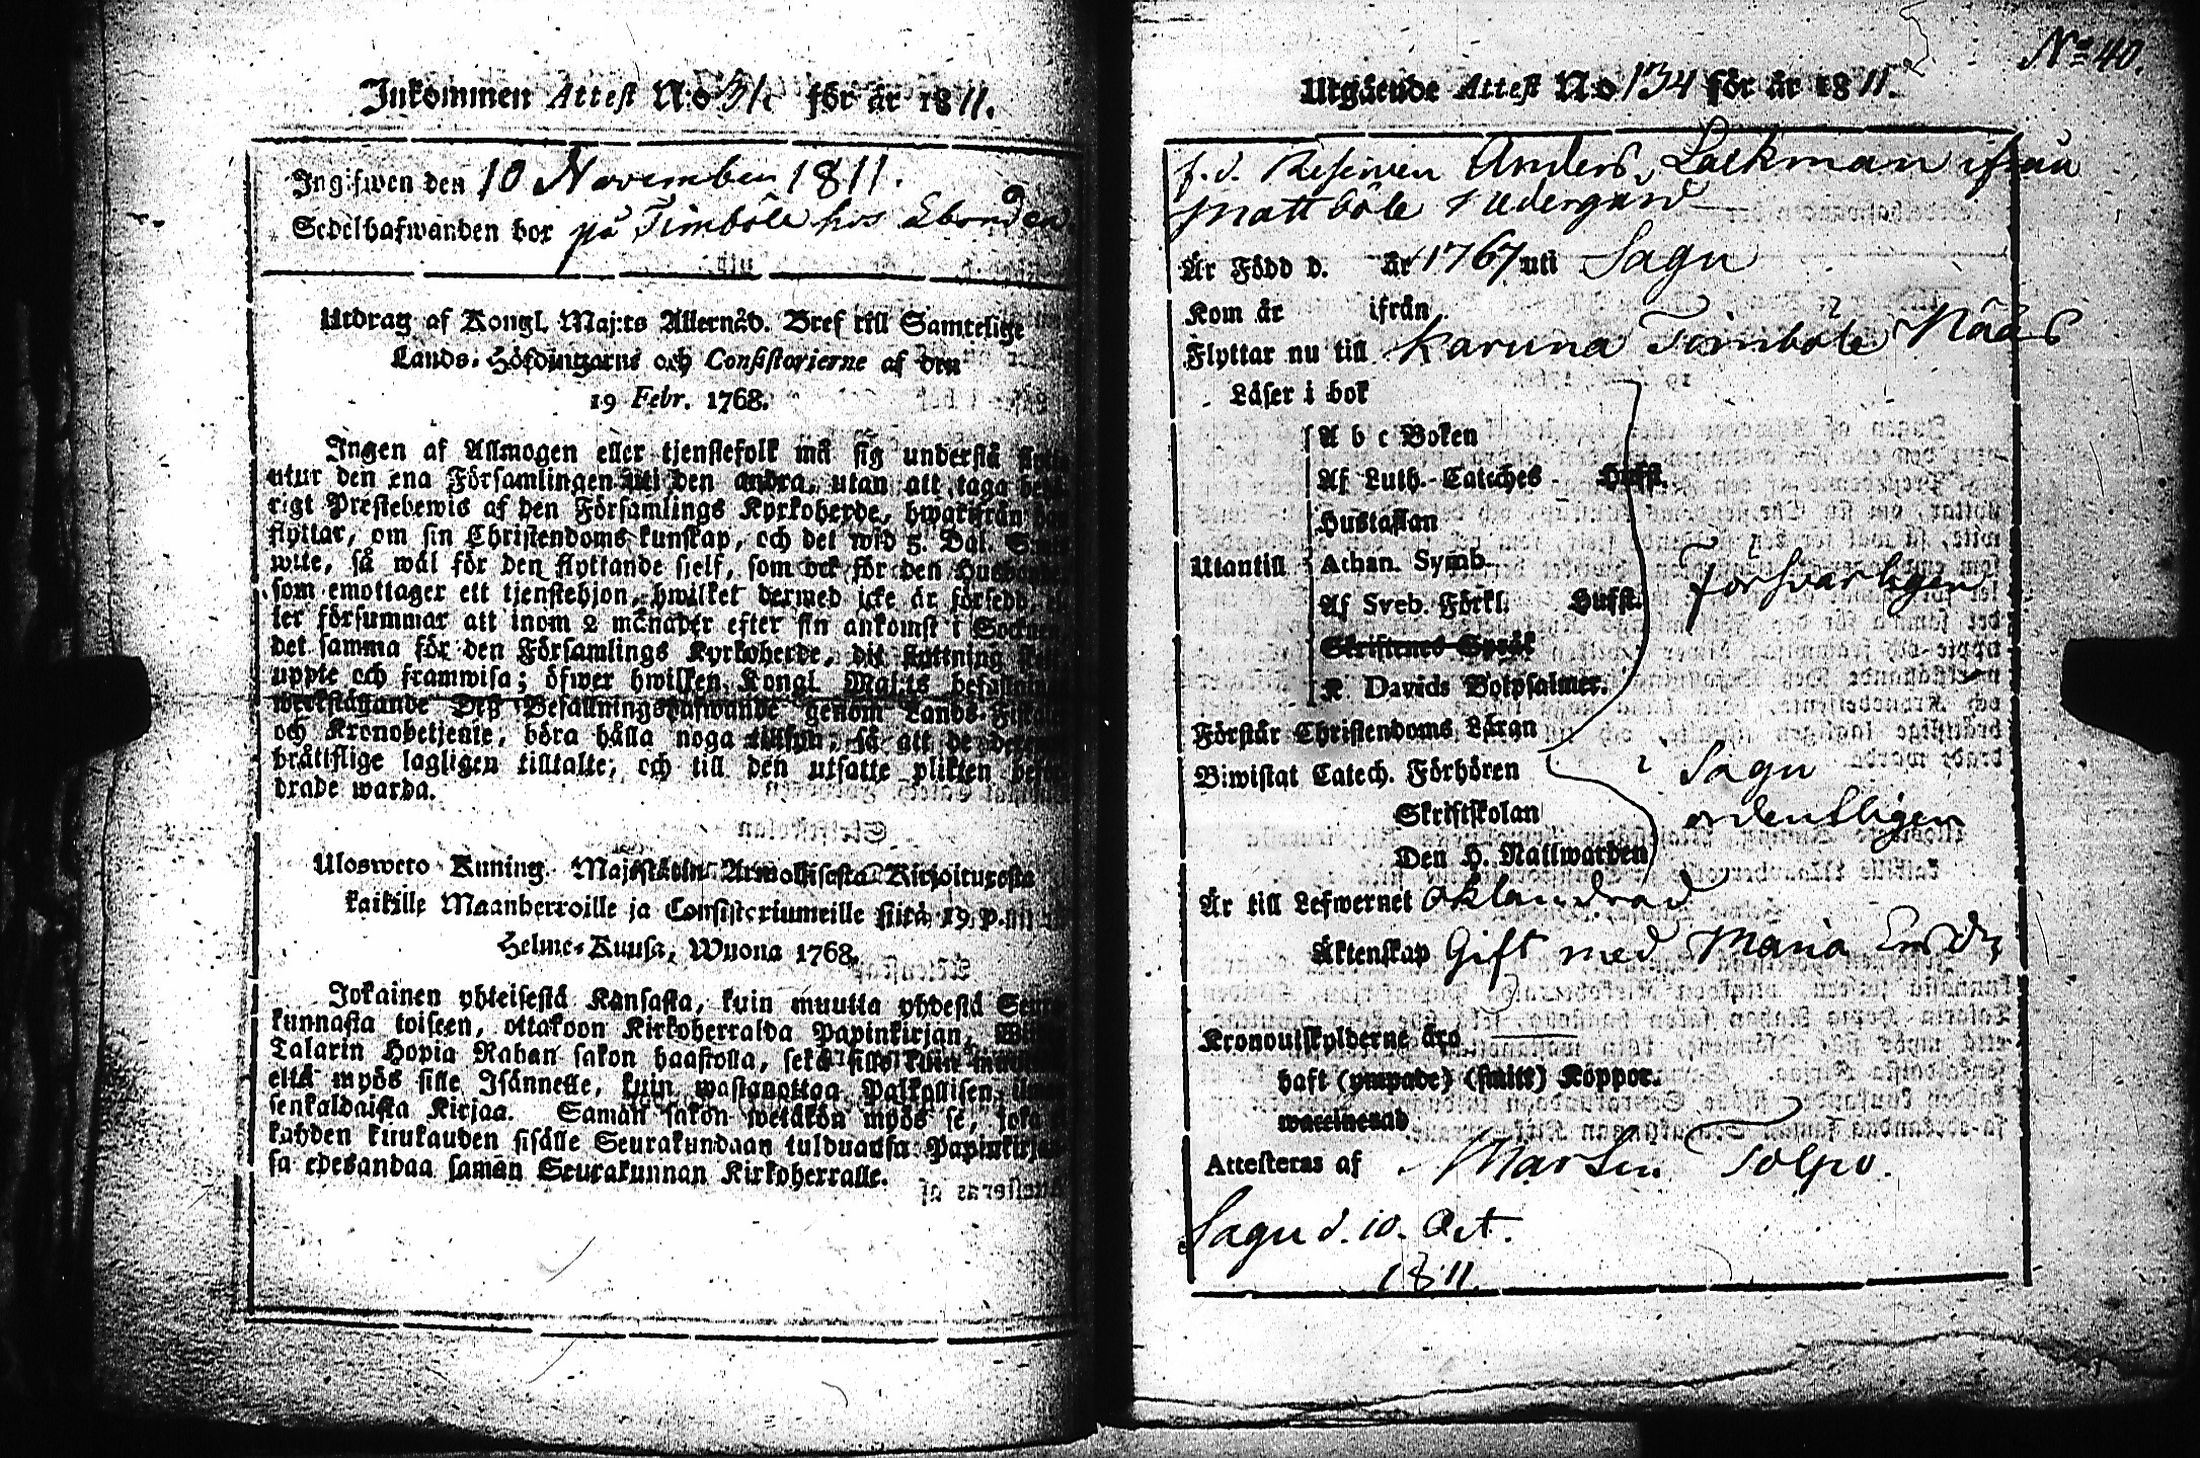 Inkommen Attest N:o 31 för år 1811.
Ingifwen den 10 November 1811.
Sedelhafwanden bor på Timböle hos
Utdrag af Kongl. Maj:ts Allernåd. Bref till Samtelige
Lands-Höfdingarne och Consistorierne af den
19 Febr. 1768.
Ingen af Allmogen eller tjenstefolk må sig understå
utur den ena Församlingen uti den andra, utan att taga
rigt Prestebewis af den Församlings Kyrkoherde, hwarifrån
flyttar, om sin Christendoms kunskap, och det wid 5. Dal.
wite, så wäl för den flyttande sielf, som ock för den
som emottager ett tjenstehjon, hwilket dermed icke är försedt,
ler försummar att inom 2 månader efter sin ankomst i
det samma för den Församlings Kyrkoherde, dit flyttning
uppte och framwisa; öfwer hwilken Kongl. Maj:ts
werkställande Dess Befallningshafwande genom Lands-
och Kronobetjente, böra hålla noga tillsyn, så att de
bråttslige lagligen tilltalte, och till den utsatte plikten
drade warda.
Ulosweto Kuning. Majestätin Armollisesta Kirjoituxesta
kaikille Maanherroille ja Consistoriumeille siitä 19. p.
Helme-Kuusa, Wuona 1768.
Jokainen yhteisestä Kansasta, kuin muutta yhdestä
kunnasta toiseen, ottakoon Kirkoherralda Papinkirjan,
Talarin Hopia Rahan sakon haastolla, sekä sille kuin
että myös sille Isännelle, kuin wastanottaa Palkollisen,
senkaldaista Kirjaa. Saman sakon wetäkön myös se,
kahden kuukauden sisälle Seurakundaan tulduansa
sa edesandaa saman Seurakunnan Kirkoherralle.
N:o 40.
Utgående Attest N:o 134 för år 1811.
f. d. Anders Lackman ifrån
Mattböle
Är Född d. år 1767 uti Sagu
Kom år ifrån
Flyttar nu till Karuna Timböle
Läser i bok
A b c Boken
Af Luth. Cateches Hufst.
Hustaflan
Utantill Athan. Symb.
Af Sveb. Förkl. Hufst.
Försvarligen
Skriftenes Språk
K. Davids Botpsalmer.
Förstår Christendoms Läran
Biwistat Catech. Förhören i Sagu
Skriftskolan ordentligen
Den H. Nattwarden
Är till Lefwernet oklandrad
Äktenskap Gift med Maria
Kronoutskylderne äro
haft (ympade) (smitt) Koppor.
waccinerad
Attesteras af Martin Tolpo.
Sagu d. 10. Oct.
1811.